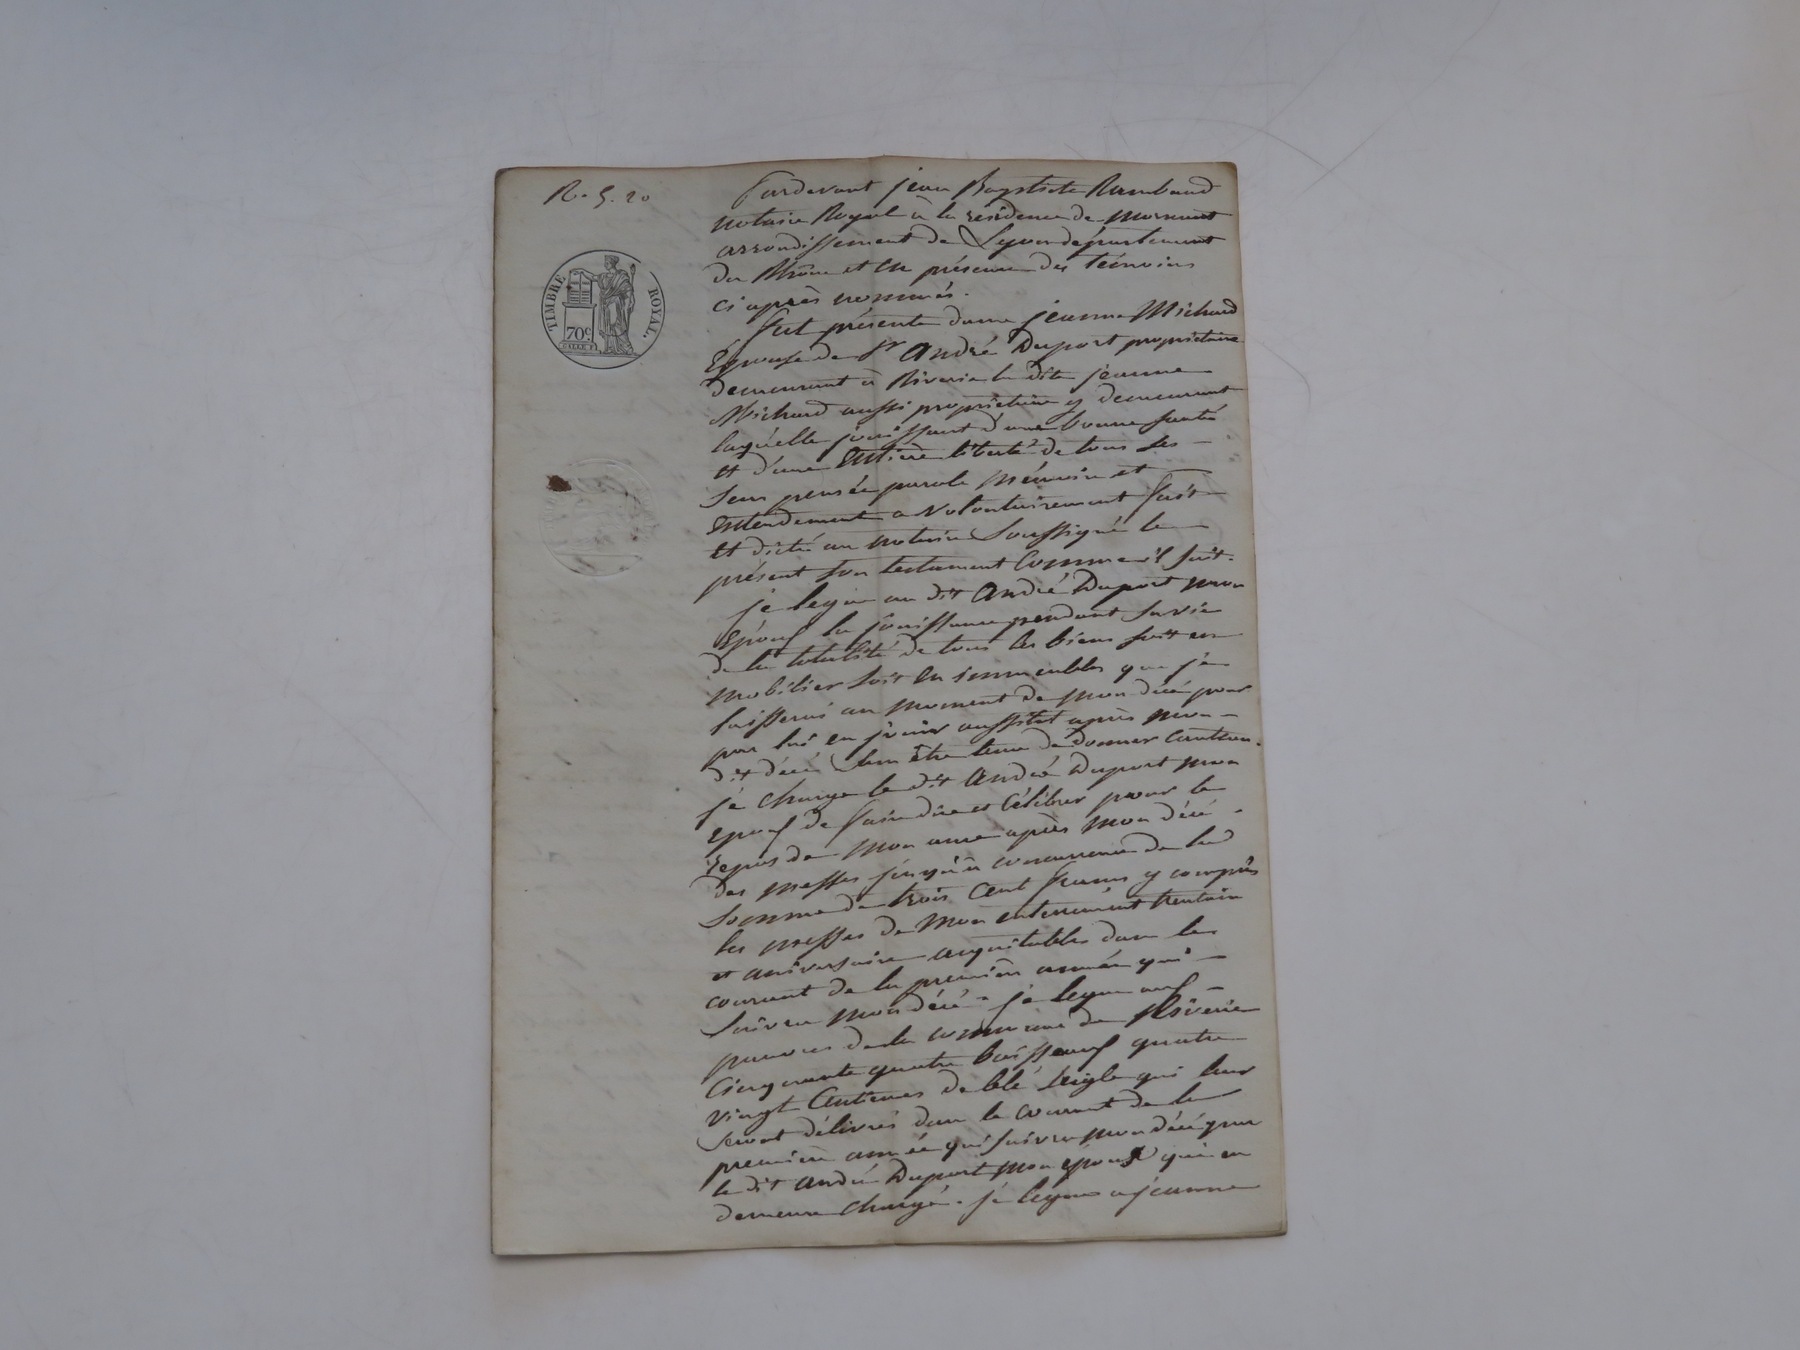 R. 5. 20
TIMBRE ROYAL.
70c
Pardevant jean Baptiste Rambaud
notaire Royal à la résidence de mornant
arrondissement de Lyon département
du Rhône et en présence des témoins
ci après nommés.
fut présente dame jeanne Michard
Epouse de Sr André Duport propriétaire
demeurant à Riverie la dite jeanne
Michard aussi propriétaire y demeurant
laquelle jouissant d'une bonne santé
et d'une Entière liberté de tous ses
sens pensée parole mémoire et
Entendement a Volontairement fait
et dicté au notaire Soussigné le
présent son testament Comme il suit.
je legue au dit André Duport mon
Epoux la jouissance pendant sa vie
de la totalité de tous les biens soit en
mobilier soit en immeubles que je
laisserai au moment de mon décé pour
par lui en jouir aussitot après mon
dit décé sans être tenu de donner Caution.
je charge le dit André Duport mon
Epoux de faire dire et Célébrer pour le
repos de mon ame après mon décé
des messes jusqu'à concurrence de la
Somme de trois Cent francs y compris
les messes de mon enterrement trentain
et aniversaire acquitables dans le
courant de la première année qui
suivra mon décé. je legue aux
pauvres de la commune de Riverie
Cinquante quatre boisseaux quatre
vingt Centiemes de blé seigle qui leur
seront délivrés dans le courant de la
première année qui suivra mon décé par
le dit André Duport mon epoux qui en
demeure chargé. je legue a jeanne